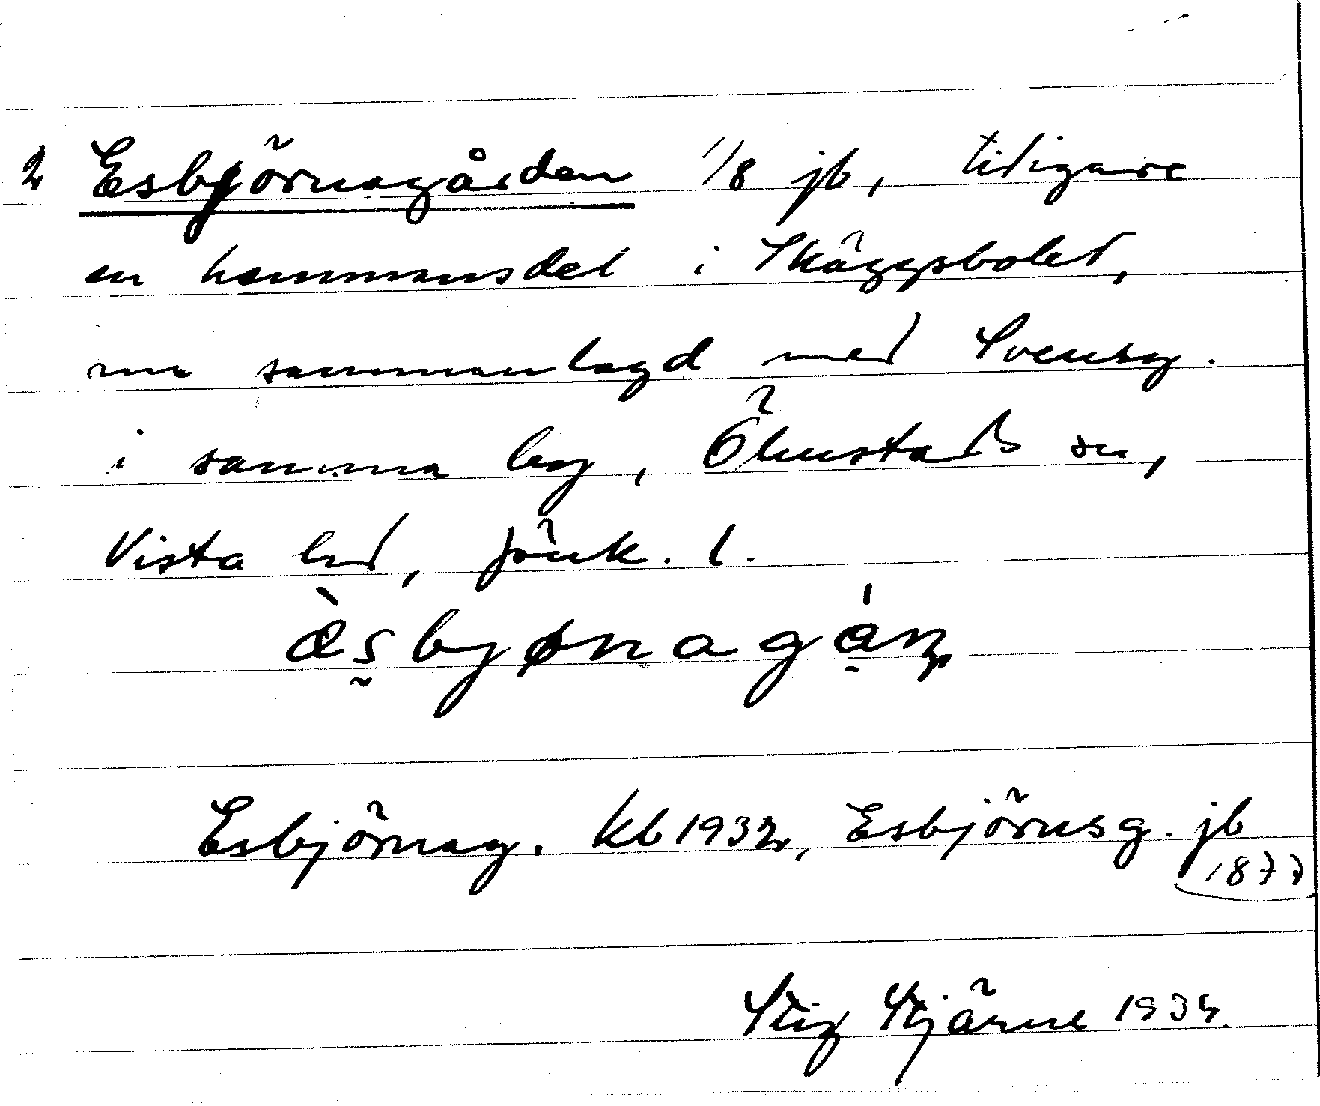 2 Esbjörnagården 1/8 jb, tidigare
en hemmansdel i Skäggebolet,
nu sammanlagd med Svensg.
i samma by, Ölmstads sn,
Vista hd, Jönk. l.
æ̀s̰byønagá̱rn
Esbjörnag. kb 1932, Esbjörnsg. jb
1877
Stig Stjärne 1934.